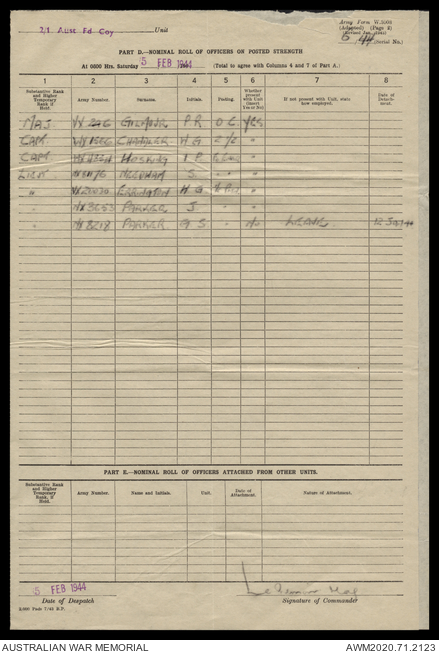 Army Form W.3008
(Adapted) (Page 2)
(Revised Jan. 1943)
2/1 Aust Fd Coy Unit
6/44 (Serial No.)
PART D.—NOMINAL ROLL OF OFFICERS ON POSTED STRENGTH
At 0600 Hrs. Saturday 5 FEB 1944 (Total to agree with Columns 4 and 7 of Part A.)
1 2 3 4 5 6 7 8
Substantive Rank and Higher Temporary Rank, if Held. Army Number. Surname. Initials. Posting. Whether present with Unit (Insert Yes or No) If not present with Unit, state how employed. Date of Detachment.
MAJ VX GILMOUR P R O C YES
CAPT. CHANDLER H G 2 i/c "
CAPT HOSKING I P "
LIEUT NEEDHAM S "
" ERRINGTON H G "
" PARKER J " "
" PARKER G S " No LEAVE 12 Jan 44
PART E.—NOMINAL ROLL OF OFFICERS ATTACHED FROM OTHER UNITS.
Substantive Rank and Higher Temporary Rank, if Held. Army Number. Name and Initials. Unit. Date of Attachment. Nature of Attachment.
5 FEB 1944
Maj
Date of Despatch Signature of Commander
AUSTRALIAN WAR MEMORIAL AWM2020.71.2123